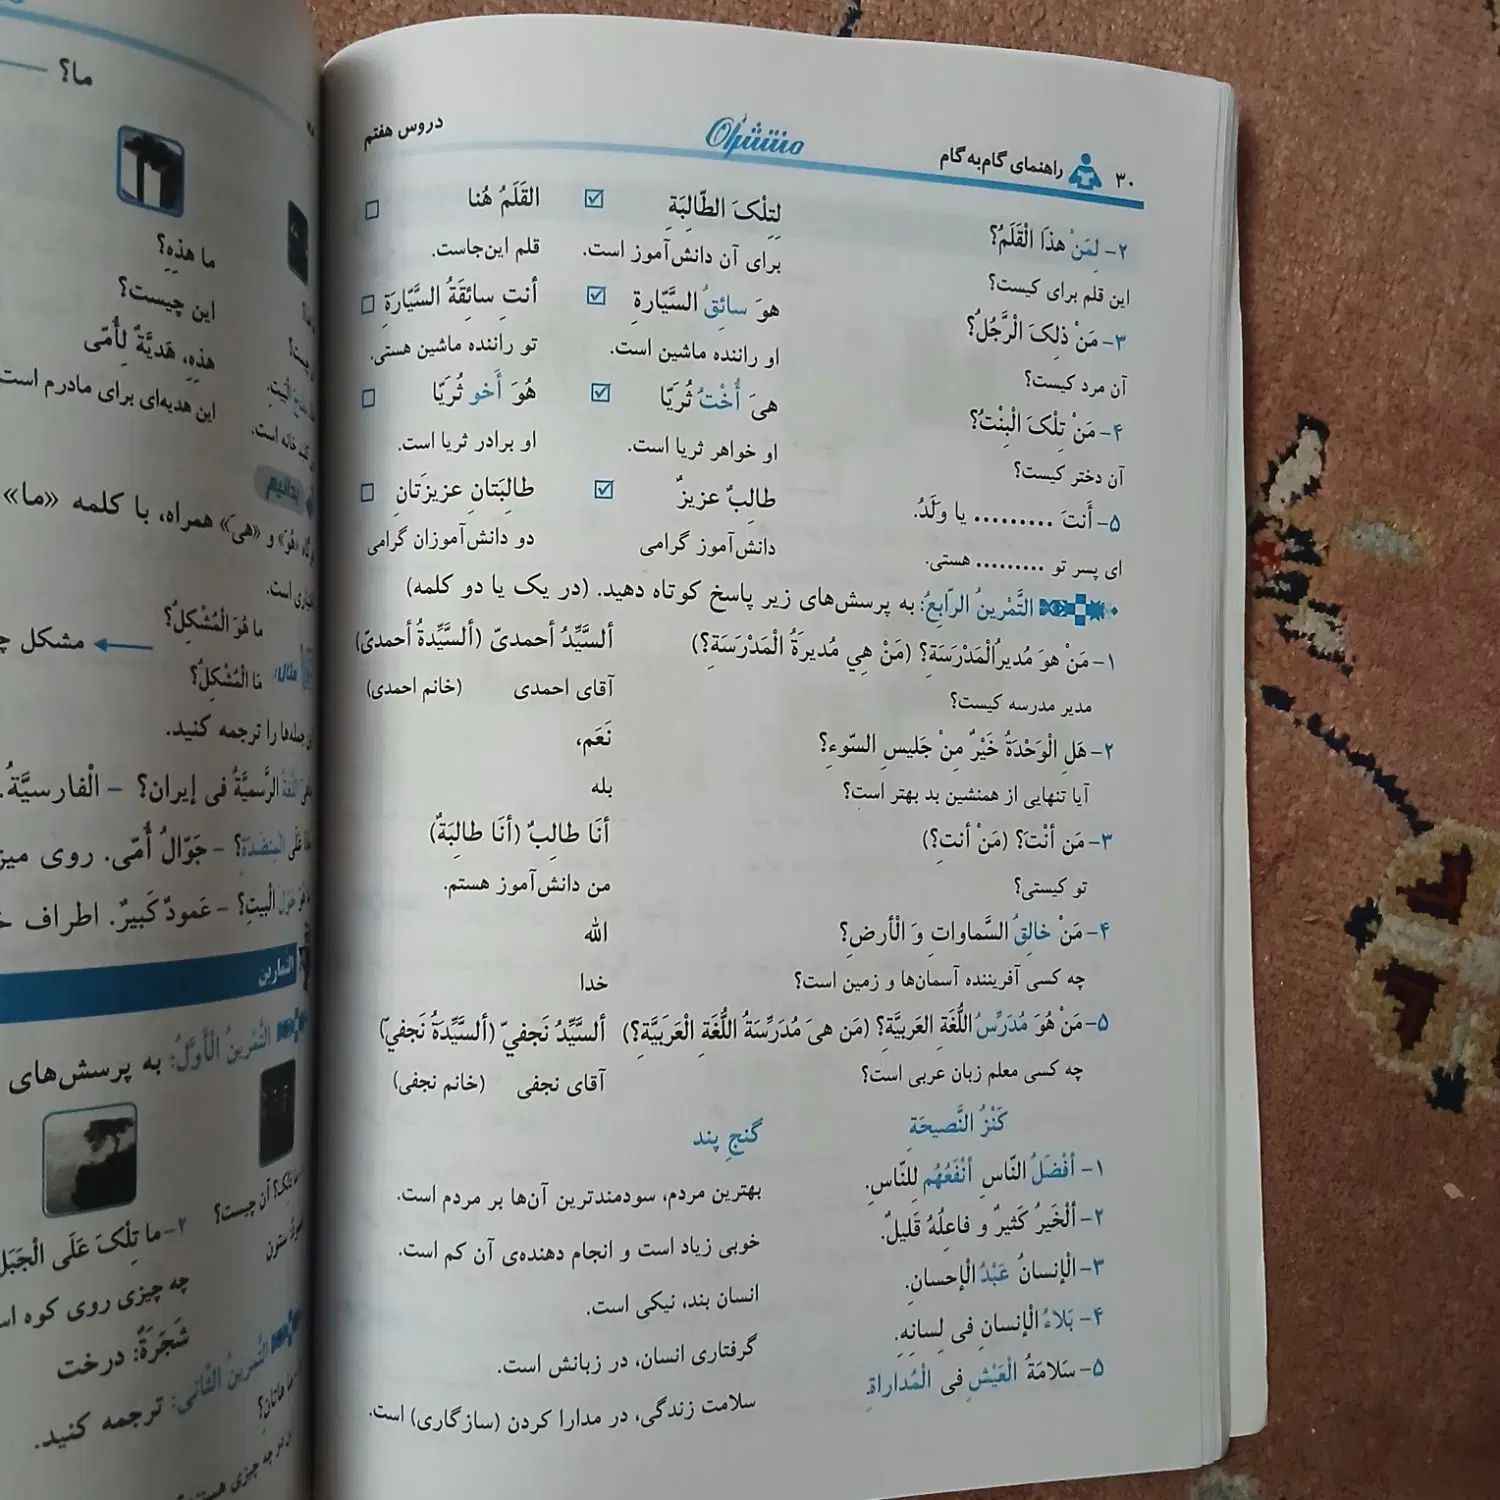 ۳۰ راهنمای گام‌به‌گام منتشران دروس هفتم
۲- لِمَنْ هذَا الْقَلَمُ؟ لِتِلْکَ الطّالِبَةِ ☑ القَلَمُ هُنا □
این قلم برای کیست؟ برای آن دانش‌آموز است. قلم این‌جاست.
۳- مَنْ ذلِکَ الْرَّجُلُ؟ هوَ سائِقُ السَّیّارةِ ☑ أنتِ سائِقَةُ السَّیّارَةِ □
آن مرد کیست؟ او راننده ماشین است. تو راننده ماشین هستی.
۴- مَنْ تِلْکَ الْبِنْتُ؟ هیَ أُخْتُ ثُرَیّا ☑ هُوَ أَخو ثُرَیّا □
آن دختر کیست؟ او خواهر ثریا است. او برادر ثریا است.
۵- أَنتَ ......... یا وَلَدُ. طالِبٌ عزیزٌ ☑ طالِبَتانِ عزیزَتانِ □
ای پسر تو ......... هستی. دانش‌آموز گرامی دو دانش‌آموزان گرامی
التَّمْرینُ الرّابِعُ: به پرسش‌های زیر پاسخ کوتاه دهید. (در یک یا دو کلمه)
۱- مَنْ هوَ مُدیرُالْمَدْرَسَةِ؟ (مَنْ هِي مُدیرَةُ الْمَدْرَسَةِ؟) ألسَّیِّدُ أحمدیّ (ألسَّیِّدةُ أحمدیّ)
مدیر مدرسه کیست؟ آقای احمدی (خانم احمدی)
۲- هَلِ الْوَحْدَةُ خَیْرٌ مِنْ جَلیسِ السّوءِ؟ نَعَم،
آیا تنهایی از همنشین بد بهتر است؟ بله
۳- مَن أنْتَ؟ (مَنْ أنتِ؟) أنَا طالِبٌ (أنَا طالِبَةٌ)
تو کیستی؟ من دانش‌آموز هستم.
۴- مَنْ خالِقُ السَّماواتِ وَ الْأرضِ؟ الله
چه کسی آفریننده آسمان‌ها و زمین است؟ خدا
۵- مَنْ هُوَ مُدَرِّسُ اللُّغَةِ العَرَبیَّةِ؟ (مَن هیَ مُدَرِّسَةُ اللُّغَةِ الْعَرَبَیَّةِ؟) ألسَّیِّدُ نَجفيّ (ألسَّیِّدَةُ نَجفيّ)
چه کسی معلم زبان عربی است؟ آقای نجفی (خانم نجفی)
کَنْزُ النَّصیحَةِ گنجِ پند
۱- أفْضَلُ النّاسِ أنْفَعُهُم لِلنّاسِ. بهترین مردم، سودمندترین آن‌ها بر مردم است.
۲- ألْخَیرُ کَثیرٌ و فاعِلُهُ قَلیلٌ. خوبی زیاد است و انجام دهنده‌ی آن کم است.
۳- الْإنسانُ عَبْدُ الْإحسانِ. انسان بند، نیکی است.
۴- بَلاءُ الْإنسانِ فی لِسانِهِ. گرفتاری انسان، در زبانش است.
۵- سَلامَةُ الْعَیْشِ فی الْمُداراةِ. سلامت زندگی، در مدارا کردن (سازگاری) است.
ما؟
ما هذِهِ؟
این چیست؟
هذِهِ، هَدیَّةٌ لِأُمّی
این هدیه‌ای برای مادرم است
خانه است.
بدانیم
«هُوَ» و «هیَ» همراه، با کلمه «ما»
است.
ما هُوَ الْمُشْکِلُ؟
مثال: مَا الْمُشْکِلُ؟ مشکل
جمله‌ها را ترجمه کنید.
اللُّغَةُ الرَّسمیَّةُ فی إیران؟ - الْفارسیَّةُ.
عَلَی الْمِنضَدَةِ؟ - جَوّالُ أُمّی. روی میز
حَوْلَ الْبیتِ؟ - عَمودٌ کَبیرٌ. اطراف
التمارین
التَّمْرینُ الْأوَّلُ: به پرسش‌های
تِلْکَ؟ آن چیست؟
ستون
۲- ما تِلْکَ عَلَی الْجَبَلِ
چه چیزی روی کوه
شَجَرَةٌ: درخت
التَّمْرینُ الثّانی: ترجمه کنید.